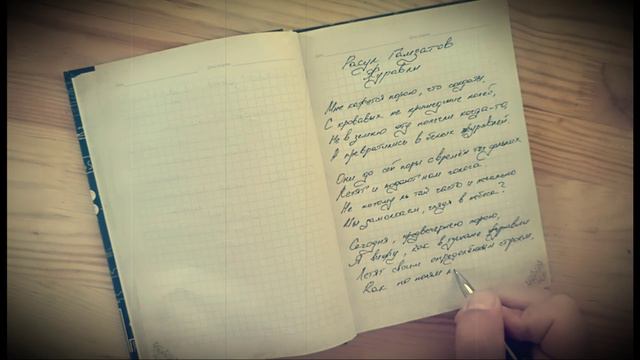 Расул Гамзатов
Журавли
Мне кажется порою, что солдаты,
С кровавых не пришедшие полей,
Не в землю эту полегли когда-то,
А превратились в белых журавлей.
Они до сей поры с времён тех дальних
Летят и подают нам голоса.
Не потому ль так часто и печально
Мы замолкаем, глядя в небеса?
Сегодня, предвечернею порою,
Я вижу, как в тумане журавли
Летят своим определённым строем,
Как по полям